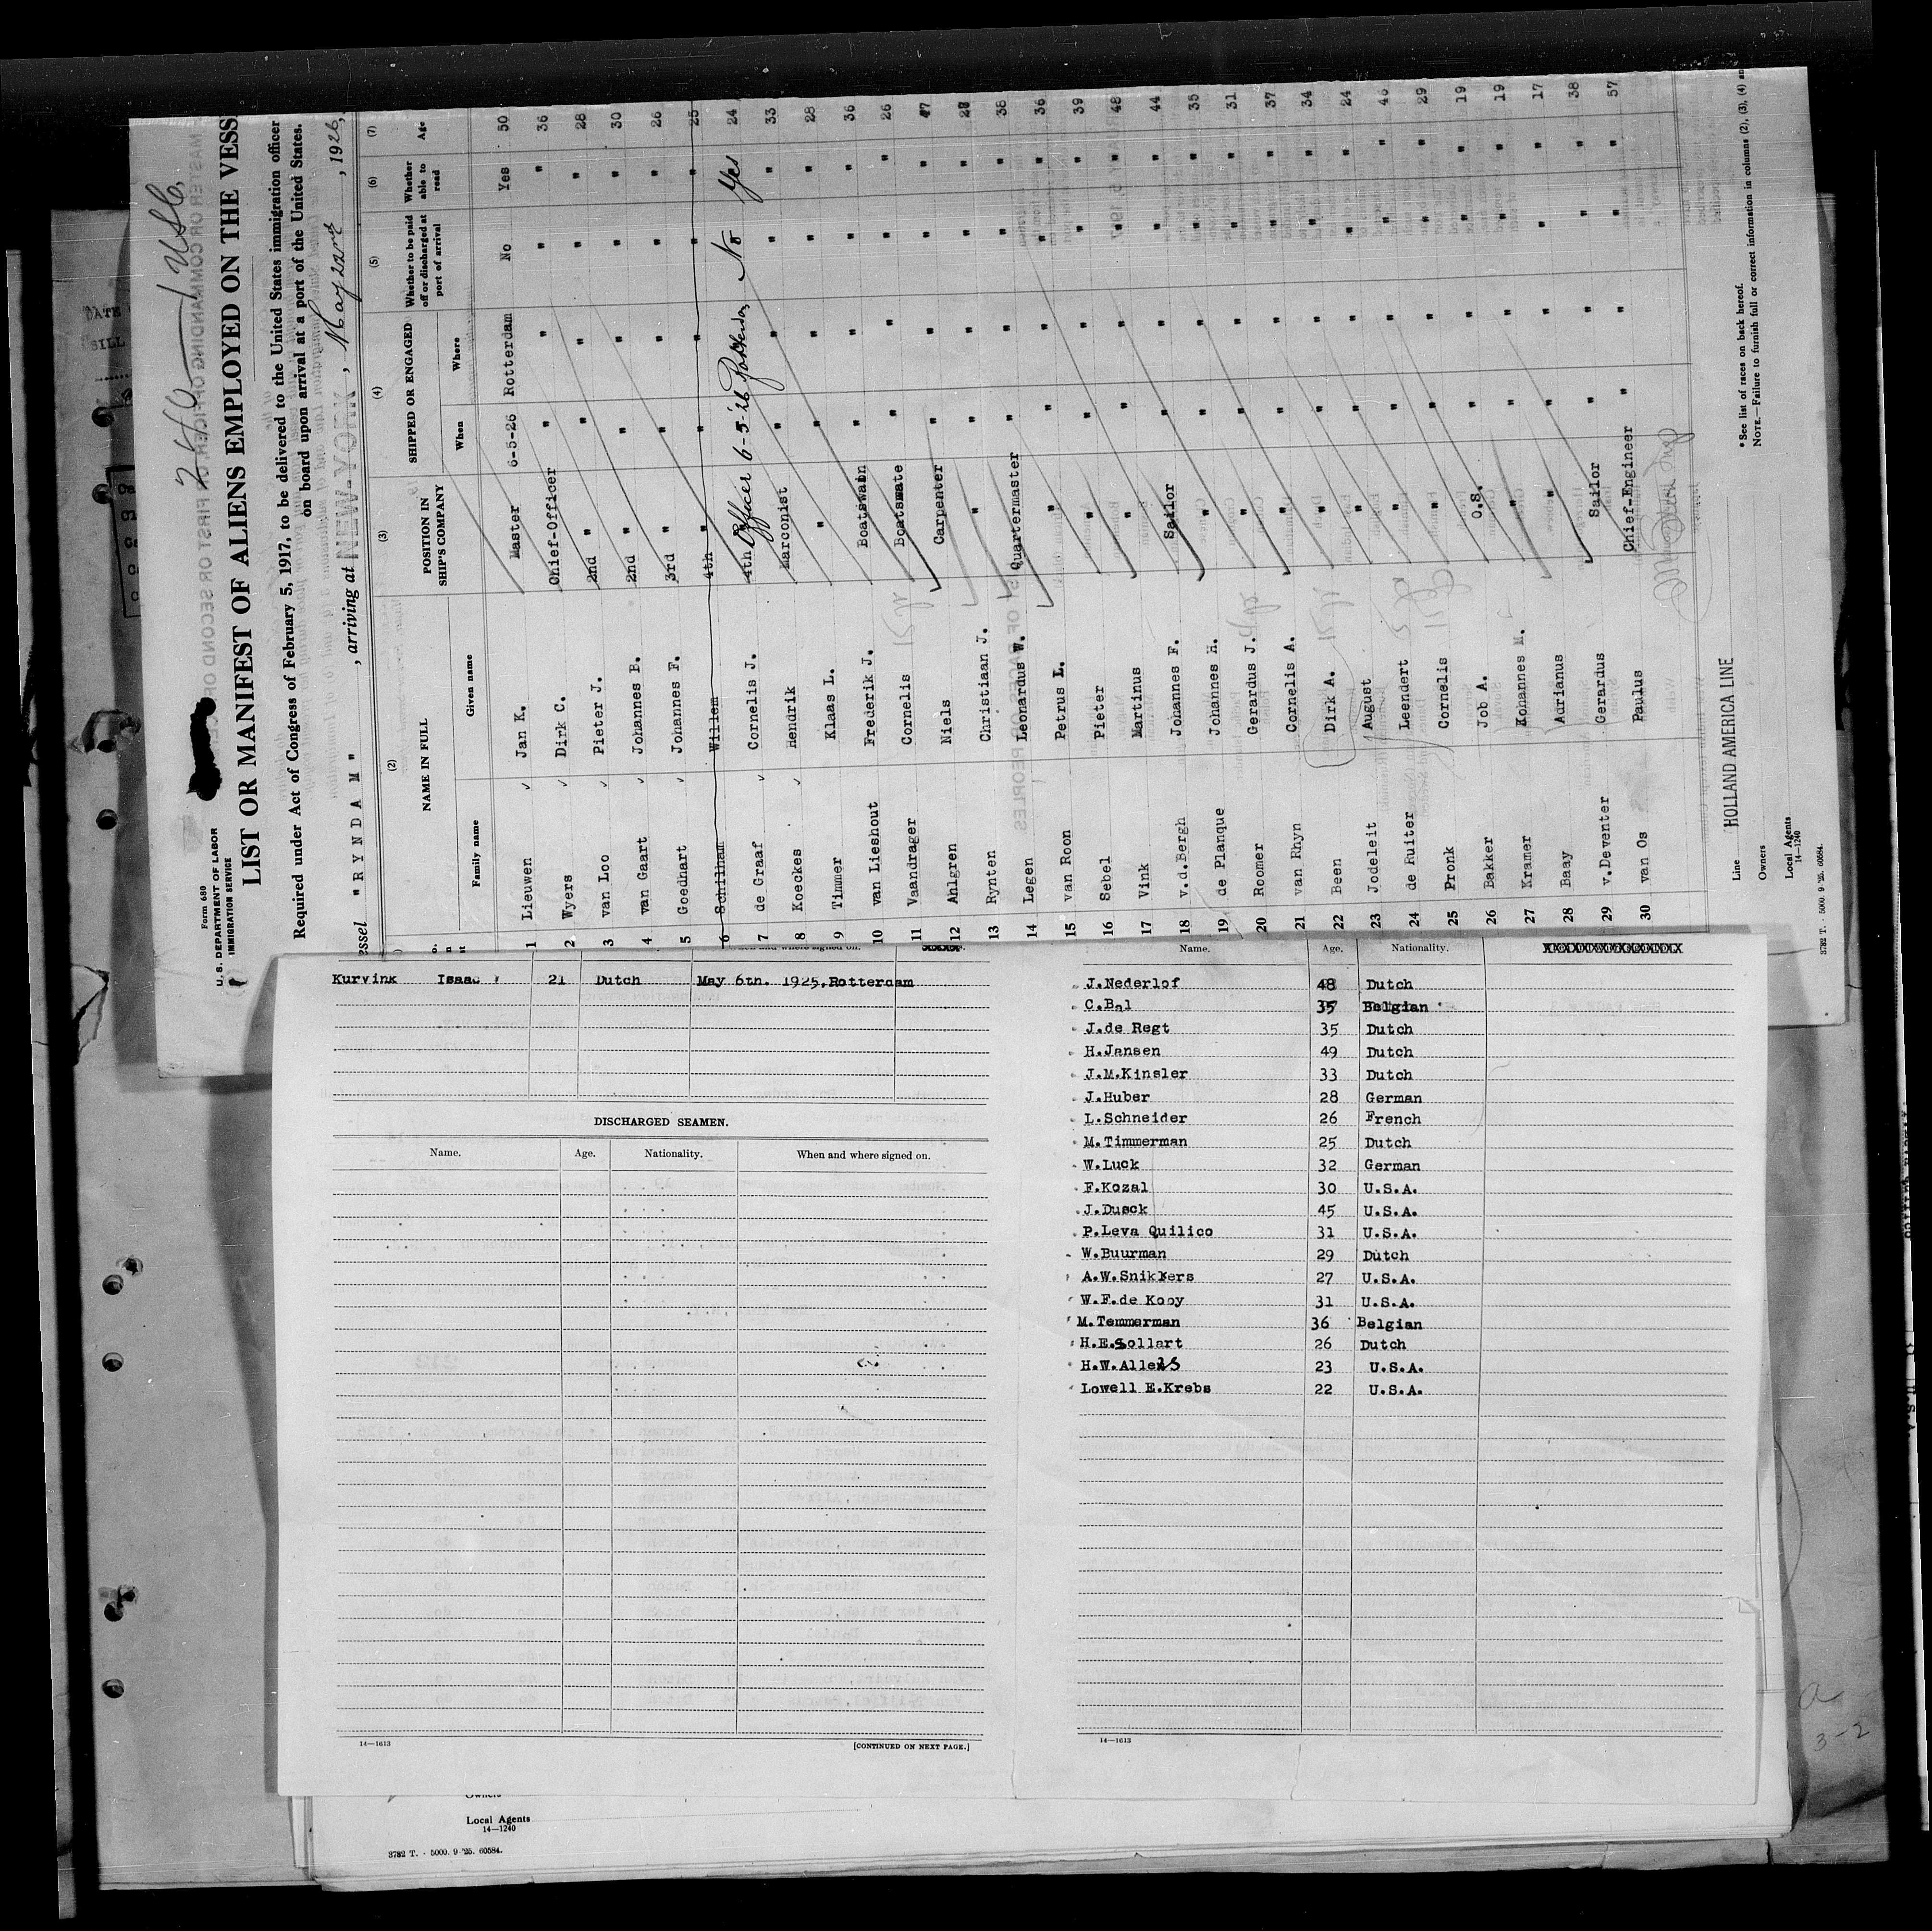 Form 680
U. S. DEPARTMENT OF LABOR
IMMIGRATION SERVICE
LIST OR MANIFEST OF ALIENS EMPLOYED ON THE VESS
Required under Act of Congress of February 5, 1917, to be delivered to the United States immigration officer
on board upon arrival at a port of the United States.
essel "RYNDAM", arriving at NEW-YORK, May 22nd, 1926,
(2) (3) (4) (5) (6) (7)
NAME IN FULL POSITION IN SHIP'S COMPANY SHIPPED OR ENGAGED Whether to be paid off or discharged at port of arrival Whether able to read Age
Family name Given name When Where
1 Lieuwen Jan K. Master 6-5-26 Rotterdam No Yes 50
2 Wyers Dirk C. Chief-Officer " " " " 36
3 van Loo Pieter J. 2nd " " " " " 28
4 van Gaart Johannes B. 2nd " " " " " 30
5 Goedhart Johannes F. 3rd " " " " " 26
6 Schilham Willem 4th " " " " " 25
7 de Graaf Cornelis J. 4th Officer 6-5-'26 Rotterdam No Yes 24
8 Koeckes Hendrik Marconist " " " " 33
9 Timmer Klaas L. " " " " " 28
10 van Lieshout Frederik J. Boatswain " " " " 36
11 Vaandrager Cornelis Boatsmate " " " " 26
12 Ahlgren Niels Carpenter " " " " 47
13 Rynten Christiaan J. " " " " "
14 Legen Leonardus W. Quartermaster " " " " 38
15 van Roon Petrus L. " " " " " 36
16 Sebel Pieter " " " " " 39
17 Vink Martinus " " " " " 48
18 v.d.Bergh Johannes F. Sailor " " " " 44
19 de Planque Johannes H. " " " " " 35
20 Roomer Gerardus J. " " " " " 31
21 van Rhyn Cornelis A. " " " " " 37
22 Been Dirk A. " " " " " 34
23 Jodeleit August " " " " " 24
24 de Ruiter Leendert " " " " " 46
25 Pronk Cornelis " " " " " 29
26 Bakker Job A. O.S. " " " " 19
27 Kramer Kohannes M. " " " " " 19
28 Baay Adrianus " " " " " 17
29 v.Deventer Gerardus Sailor " " " " 38
30 van Os Paulus Chief-Engineer " " " " 57
Line HOLLAND AMERICA LINE
Owners
Local Agents
14—1240
* See list of races on back hereof.
NOTE.—Failure to furnish full or correct information in columns (2), (3), (4) an
3782 T. - 5000. 9-'25. 60584.
Kurvink Isaac 21 Dutch May 6th. 1925, Rotterdam
DISCHARGED SEAMEN.
Name. Age. Nationality. When and where signed on.
14—1613
[CONTINUED ON NEXT PAGE.]
Name. Age. Nationality.
J.Nederlof 48 Dutch
C.Bal 35 Belgian
J.de Regt 35 Dutch
H.Jansen 49 Dutch
J.M.Kinsler 33 Dutch
J.Huber 28 German
L.Schneider 26 French
M.Timmerman 25 Dutch
W.Luck 32 German
F.Kozal 30 U.S.A.
J.Dusck 45 U.S.A.
P.Leva Quilico 31 U.S.A.
W.Buurman 29 Dutch
A.W.Snikkers 27 U.S.A.
W.F.de Kooy 31 U.S.A.
M.Temmerman 36 Belgian
H.E.Sollart 26 Dutch
H.W.Allen 23 U.S.A.
Lowell E.Krebs 22 U.S.A.
14—1613
Owners
Local Agents
14—1240
3782 T. - 5000. 9-'25. 60584.